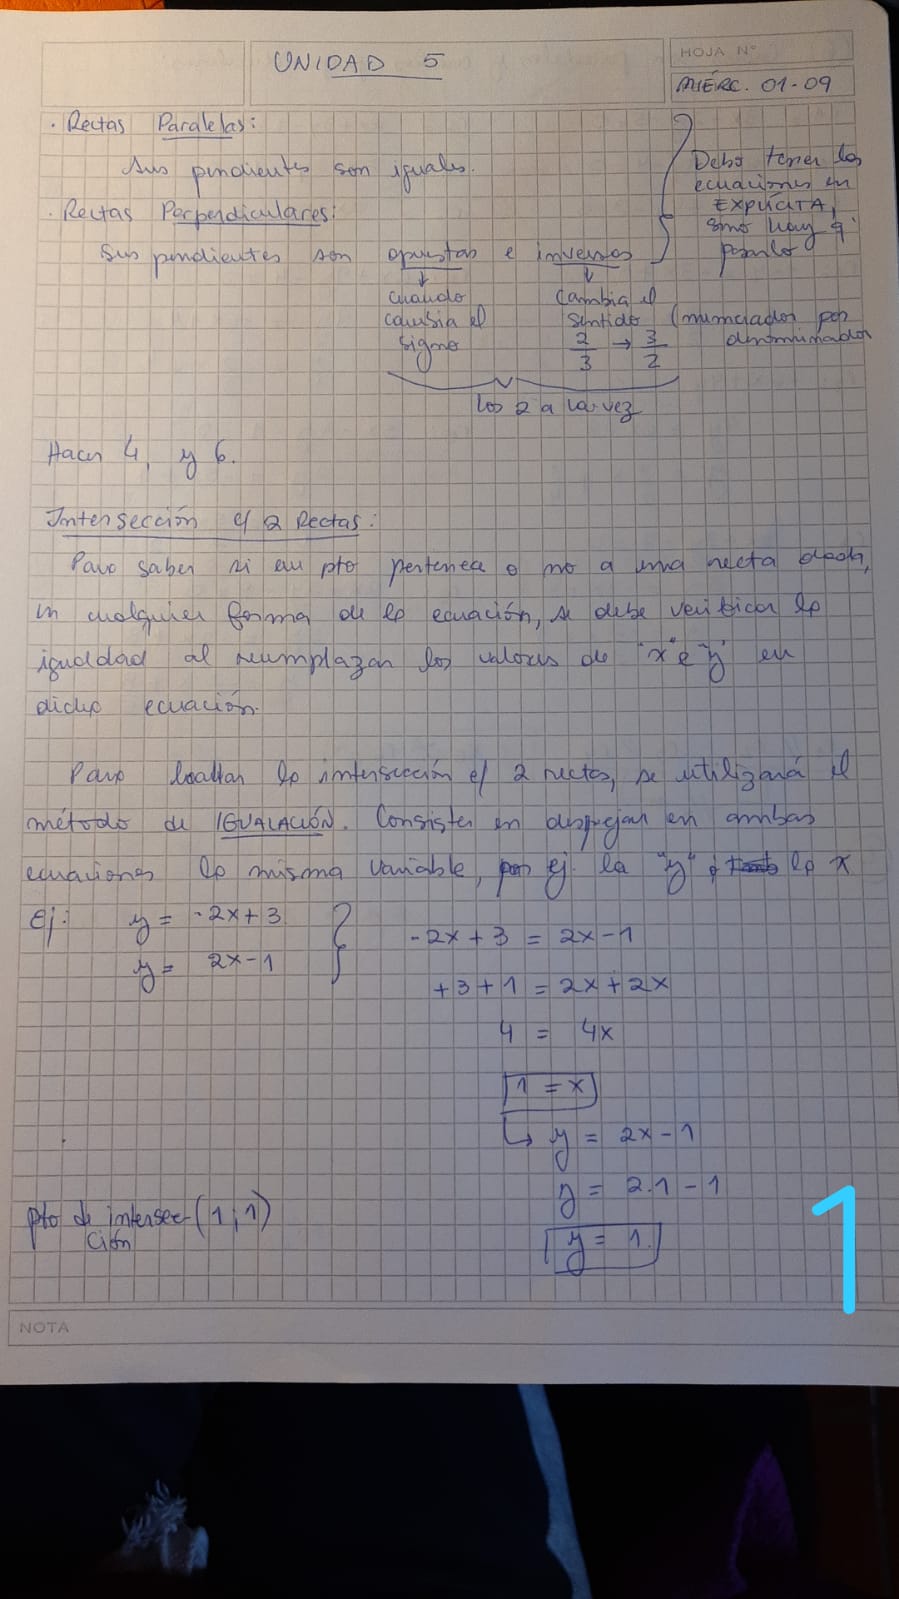 UNIDAD 5
HOJA N°
MIÉRC. 01-09
· Rectas Paralelas:
Sus pendientes son iguales.
· Rectas Perpendiculares:
Sus pendientes son opuestas e inversas
Debo tener las
ecuaciones en
EXPLÍCITA,
sino hay q'
pasarlo
↓
cuando
cambia el
signo
↓
Cambia el
sentido (numerador por
denominador
2/3 → 3/2
los 2 a la vez
Hacer 4, y 6.
Intersección e/ 2 Rectas:
Para saber si un pto pertenece o no a una recta dada,
en cualquier forma de la ecuación, se debe verificar la
igualdad al reemplazar los valores de "x" e "y" en
dicha ecuación.
Para hallar la intersección e/ 2 rectas, se utilizará el
método de IGUALACIÓN. Consiste en despejar en ambas
ecuaciones la misma variable, por ej. la "y" ó la x
Ej: y = -2x + 3
y = 2x - 1
-2x + 3 = 2x - 1
+3 + 1 = 2x + 2x
4 = 4x
1 = x
↳ y = 2x - 1
y = 2.1 - 1
y = 1.
pto de intersec- (1;1)
ción
1
NOTA